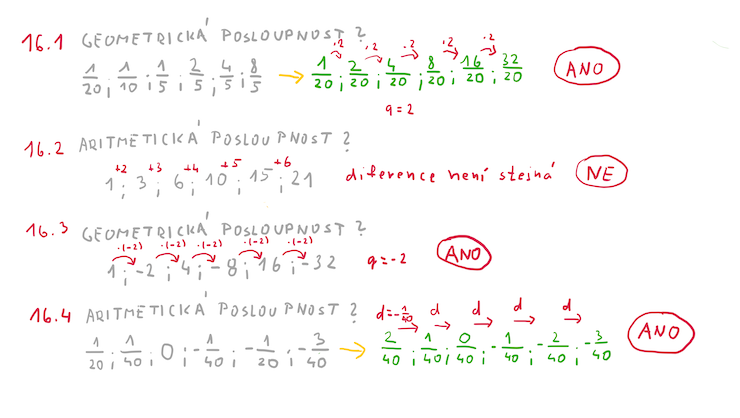 16.1 GEOMETRICKÁ POSLOUPNOST ?
·2 ·2 ·2 ·2 ·2
1/20 ; 1/10 ; 1/5 ; 2/5 ; 4/5 ; 8/5 → 1/20 ; 2/20 ; 4/20 ; 8/20 ; 16/20 ; 32/20 ANO
q = 2
16.2 ARITMETICKÁ POSLOUPNOST ?
+2 +3 +4 +5 +6
1 ; 3 ; 6 ; 10 ; 15 ; 21 diference není stejná NE
16.3 GEOMETRICKÁ POSLOUPNOST ?
·(-2) ·(-2) ·(-2) ·(-2) ·(-2)
1 ; -2 ; 4 ; -8 ; 16 ; -32 q = -2 ANO
16.4 ARITMETICKÁ POSLOUPNOST ? d = -1/40 d d d d
1/20 ; 1/40 ; 0 ; -1/40 ; -1/20 ; -3/40 → 2/40 ; 1/40 ; 0/40 ; -1/40 ; -2/40 ; -3/40 ANO